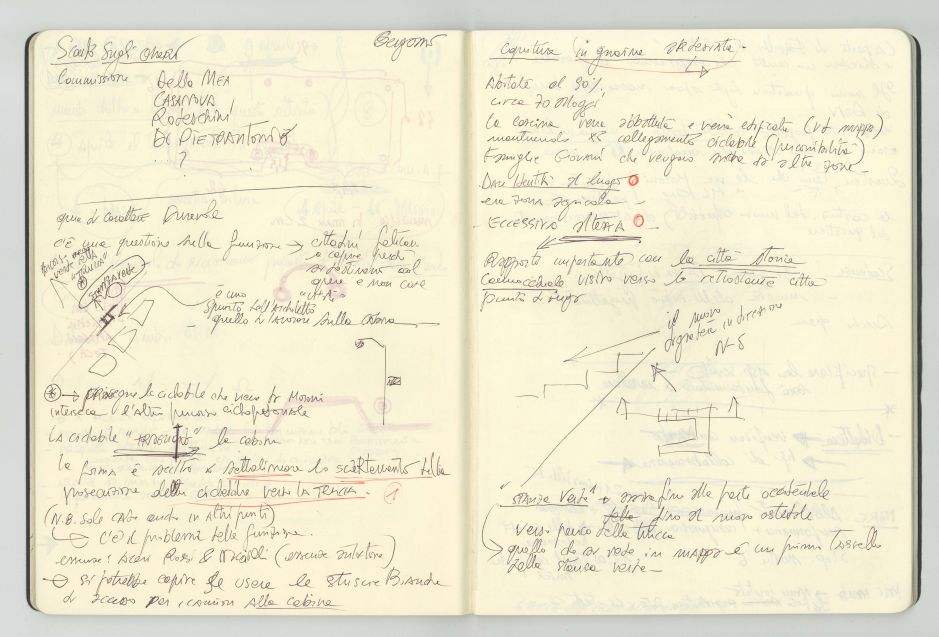 Bergamo
Commissione Della Mea
Casanova
Rodeschini
Di Pietrantonio
... ?
opera di carattere Durevole
c'è una questione sulla funzione → cittadini faticano
a capire perché
si destinano col
opere e non cure
"STANZA VERDE"
è uno
spunto dell'Architetto
quello di lavorare sulla cabina
→ prosegue la ciclabile che viene da Moroni
interseca l'altro percorso ciclopedonale
La ciclabile " " la cabina
la forma è scelta a sottolineare lo scartamento della
prosecuzione della ciclabile verso la Trucca. 1
(N.B. Sale CABI anche in altri punti)
c'è il problema della funzione.
emerse: aceri Rossi &
→ si potrebbe capire se usare le strisce Bianche
di accesso per i camion alla cabina
Copertura in guaina ardesiata.
Abitato al 90%.
circa 70 alloggi
la cascina verrà abbattuta e verrà edificata (vd mappa)
mantenendo collegamento ciclabile (percorribilità)
Famiglie Giovani che vengono anche da altre zone.
Dare Identità al luogo
era zona agricola
ECCESSIVA altezza
Rapporto importante con la città storica
Cannocchiale visivo verso la retrostante città
punto di fuga
il nuovo
in direzione
N-S
STANZA VERDE → arriva fino alla parte occidentale
fino al nuovo ostedale
verso parco della Trucca
quello che si vede in mappa è un primo tassello
della stanza verde -